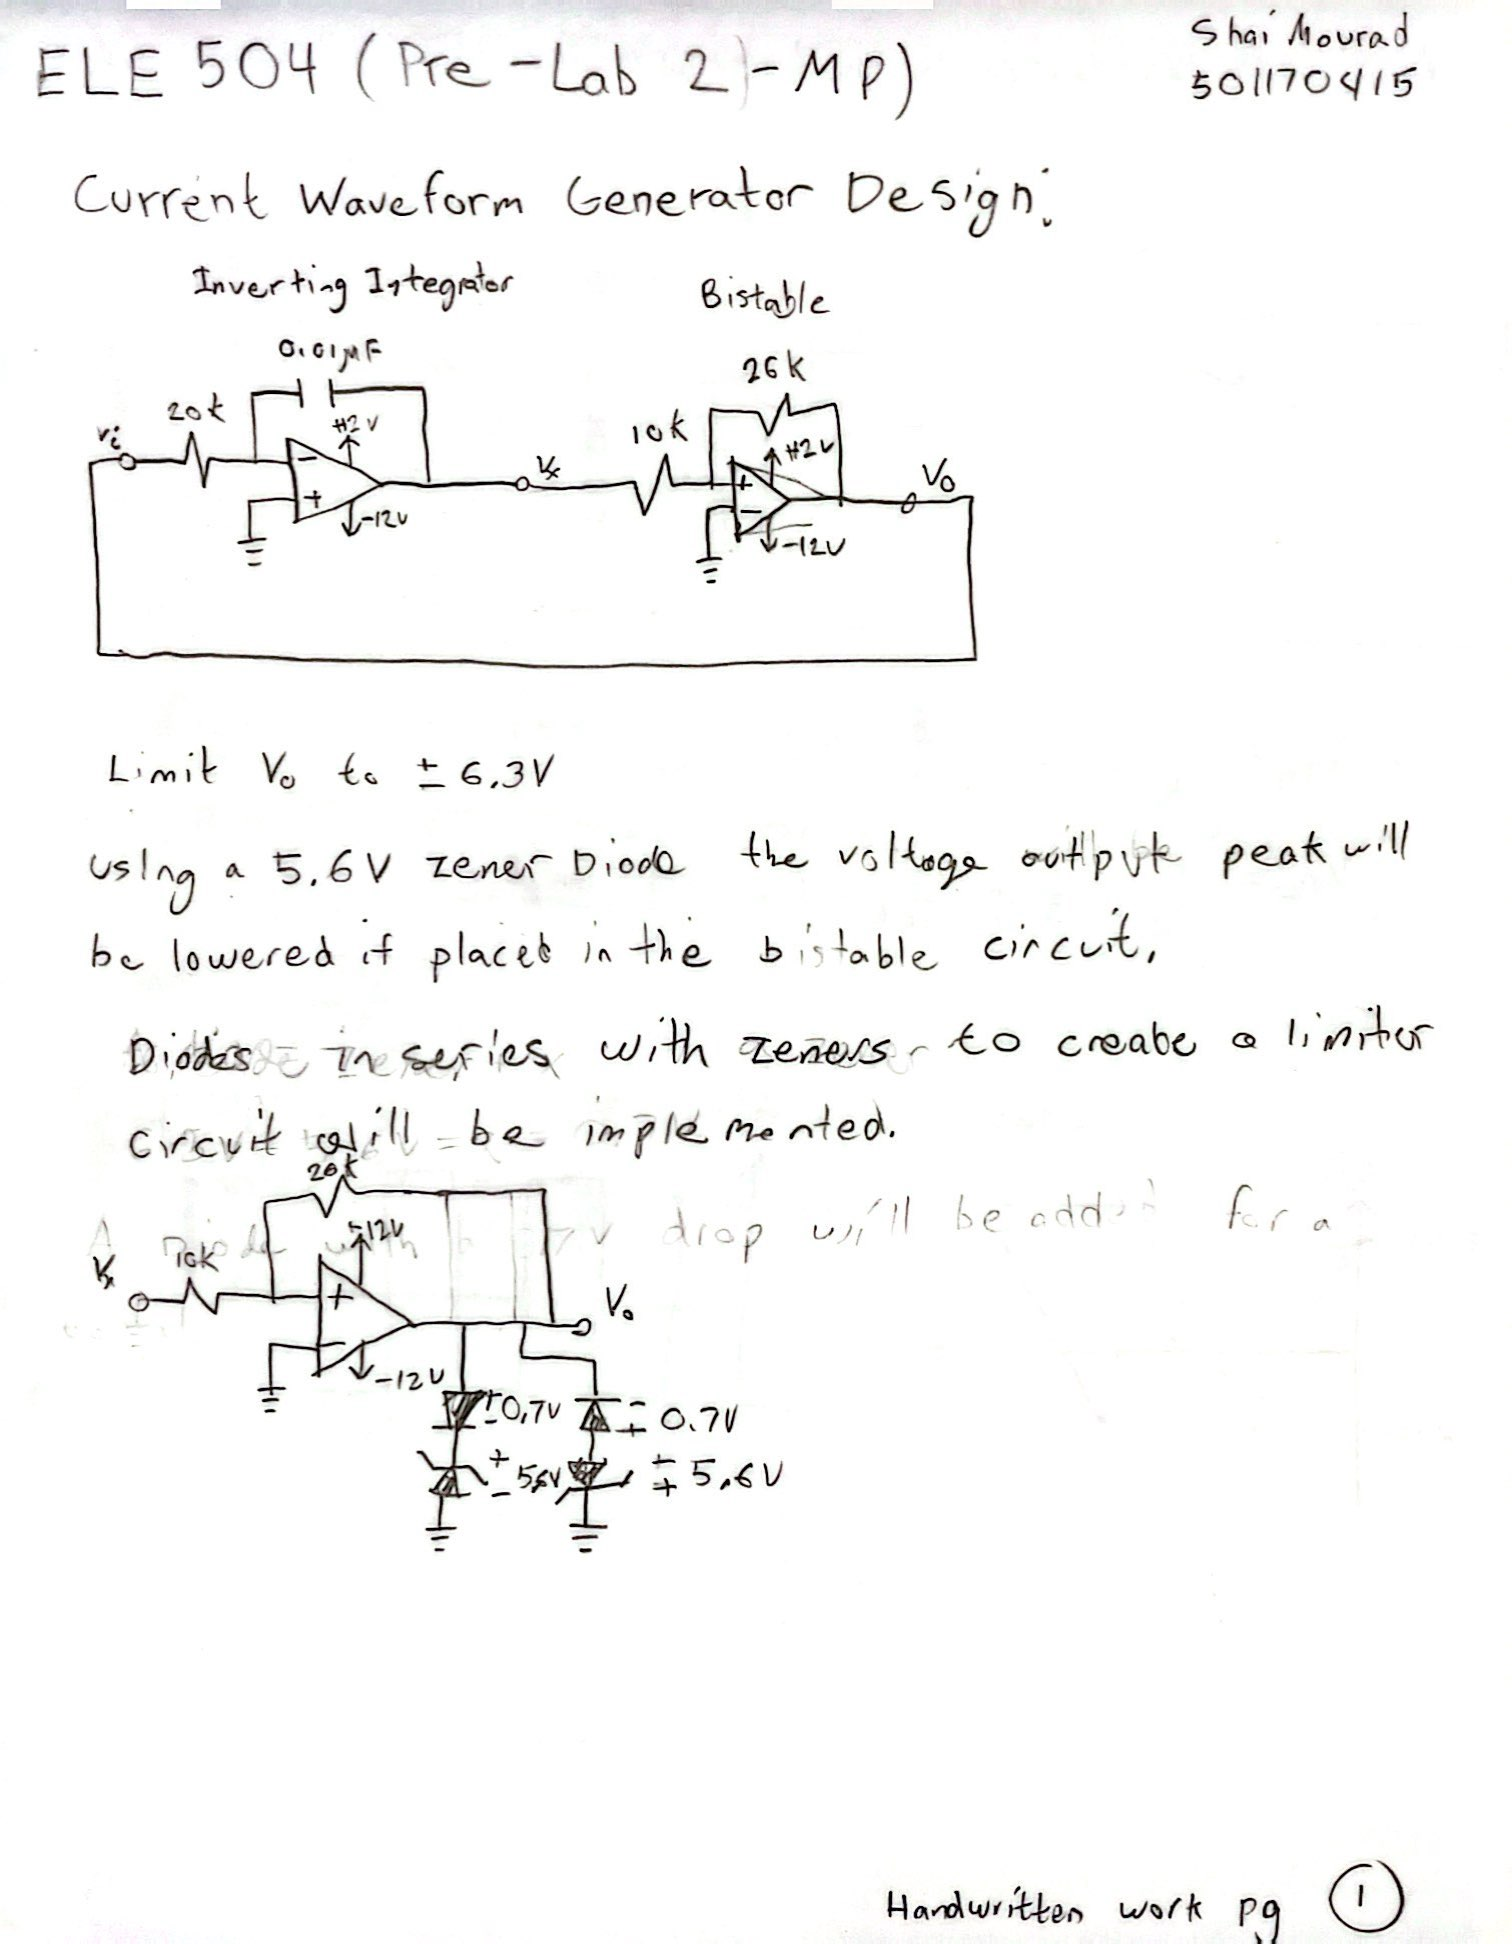 ELE 504 (Pre-Lab 2)-MP)
Shai Mourad
501170415
Current Waveform Generator Design:
Inverting Integrator
Bistable
0.01μF
26k
20k
+12V
vi
10k
+12V
Vx
Vo
-
+
+
-
-12V
-12V
Limit Vo to ± 6.3V
using a 5.6V zener Diode the voltage output peak will
be lowered if placed in the bistable circuit.
Diodes in series with zeners to create a limiter
circuit will be implemented.
20k
drop will be added for a
+12V
Vx
10k
+
Vo
-
-12V
+
-
0.7V
-
+
0.7V
+
-
5.6V
-
+
5.6V
Handwritten work pg 1